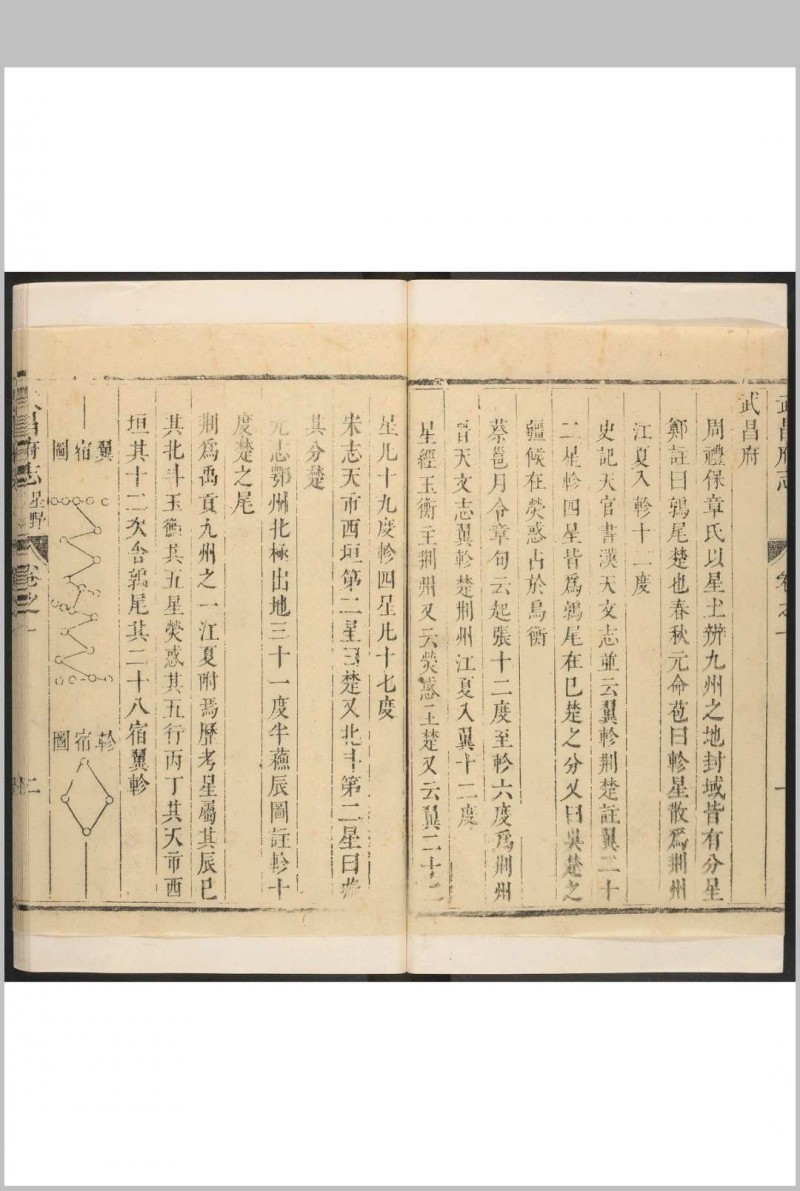 武昌府志
卷之一
一
武昌府
周禮保章氏以星土辨九州之地封域皆有分星
鄭註曰鶉尾楚也春秋元命苞曰軫星散爲荆州
江夏入軫十二度
史記天官書漢天文志並云翼軫荆楚註翼二十
二星軫四星皆爲鶉尾在巳楚之分又曰吳楚之
疆候在熒惑占於鳥衡
蔡邕月令章句云起張十二度至軫六度爲荆州
晉天文志翼軫楚荆州江夏入翼十二度
星經玉衡主荆州又云熒惑主楚又云翼二十二
星凡十九度軫四星凡十七度
宋志天市西垣第二星曰楚又北斗第二星曰
其分楚
元志鄂州北極出地三十一度半蘓辰圖註軫十
度楚之尾
荆爲禹貢九州之一江夏附焉歷考星屬其辰巳
其北斗玉衡其五星熒惑其五行丙丁其天市西
垣其十二次舍鶉尾其二十八宿翼軫
翼宿圖
軫宿圖
昌府志
星野
卷之一
二